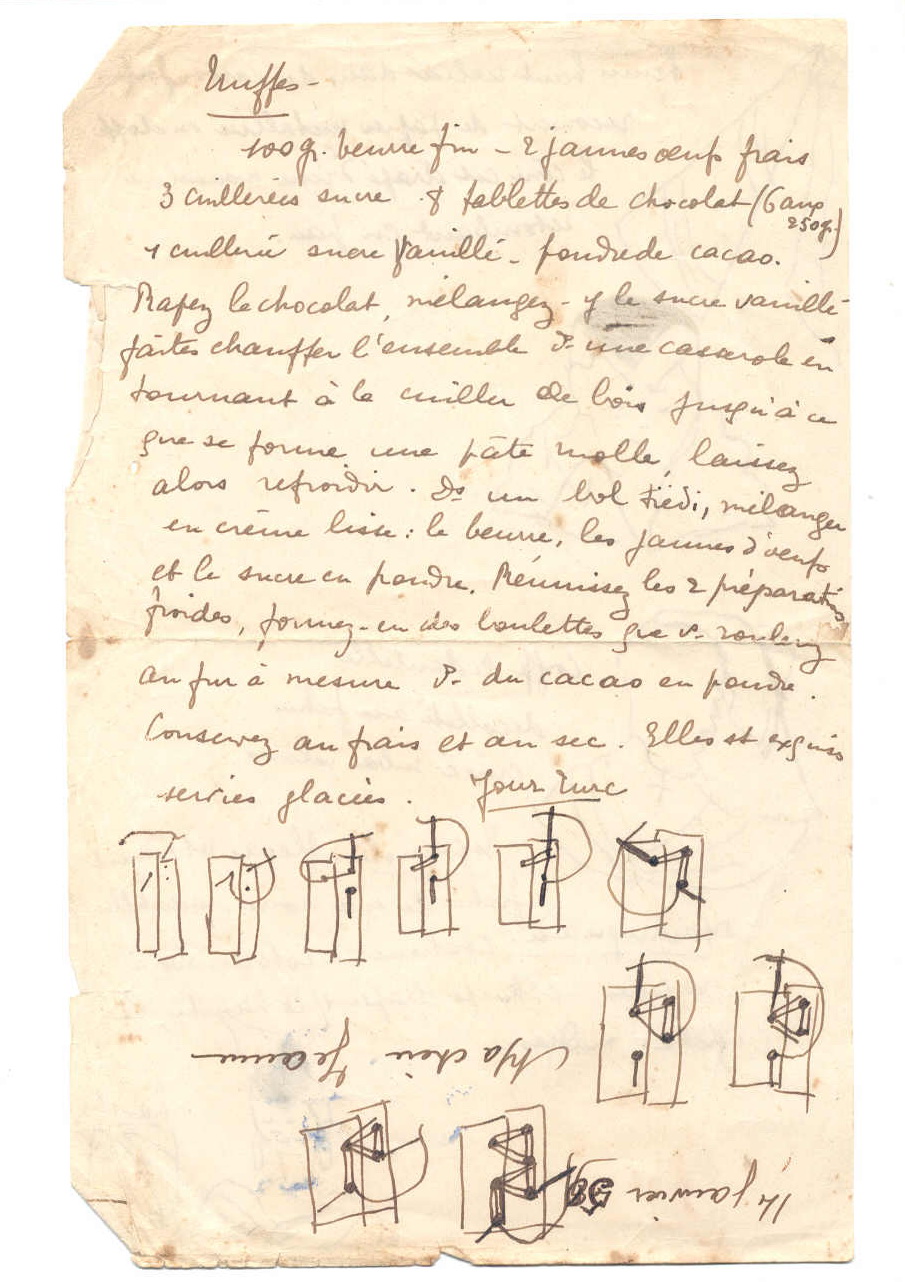 Truffes -
100 gr. beurre fin - 2 jaunes oeufs frais
3 cuillerées sucre 8 tablettes de chocolat (6 aux
250 gr.)
1 cuillerée sucre Vanillé - poudre de cacao.
Rapez le chocolat, mélangez-y le sucre vanillé
faites chauffer l'ensemble ds une casserole en
tournant à la cuiller de bois jusqu'à ce
que se forme une pâte molle, laissez
alors refroidir. Ds un bol tiédi, mélanger
en crème lisse : le beurre, les jaunes d'oeufs
et le sucre en poudre. Réunissez les 2 préparations
froides, formez-en des boulettes que vs roulerez
au fur à mesure ds du cacao en poudre.
Conservez au frais et au sec. Elles st exquises
servies glacées. Jour Turc
Ma chère Jeanne
14 janvier 58